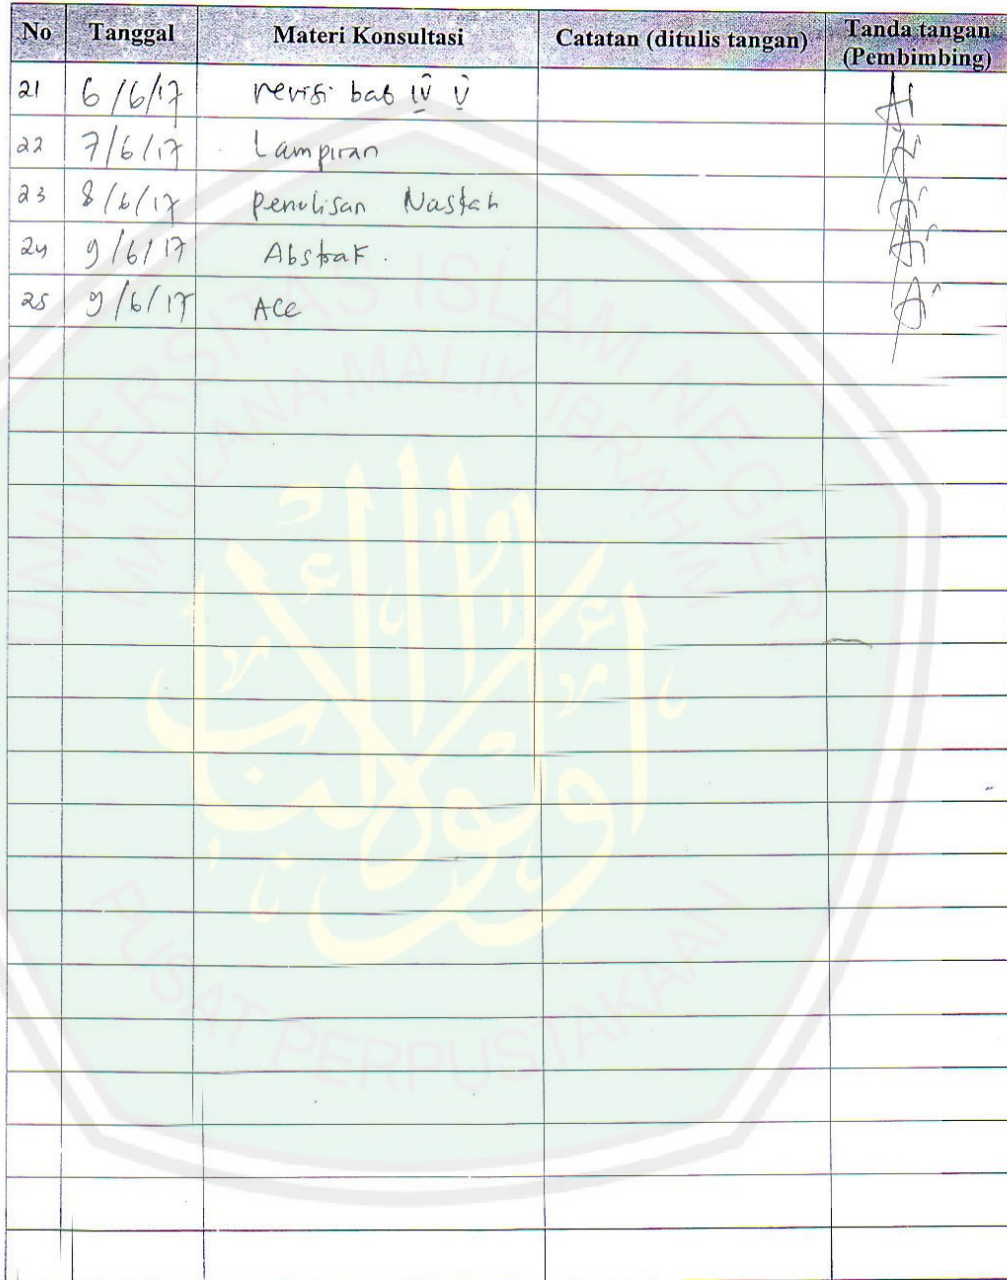 No Tanggal Materi Konsultasi Catatan (ditulis tangan) Tanda tangan
(Pembimbing)
21 6/6/17 revisi bab IV V
22 7/6/17 Lampiran
23 8/6/17 Penulisan Naskah
24 9/6/17 Abstrak.
25 9/6/17 ACC
UNIVERSITAS ISLAM NEGERI
MAULANA MALIK IBRAHIM
PUSAT PERPUSTAKAAN